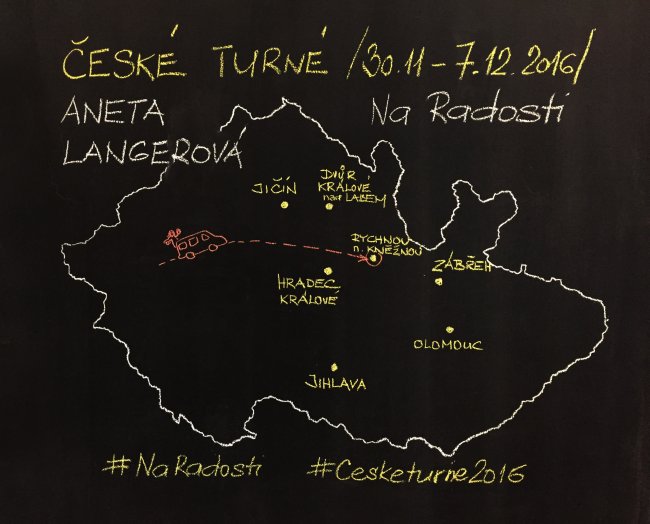 ČESKÉ TURNÉ /30.11 – 7.12.2016/
ANETA
LANGEROVÁ
Na Radosti
JIČÍN
DVŮR
KRÁLOVÉ
nad LABEM
RYCHNOV
n. KNĚŽNOU
ZÁBŘEH
HRADEC
KRÁLOVÉ
OLOMOUC
JIHLAVA
#NaRadosti
#Cesketurne2016